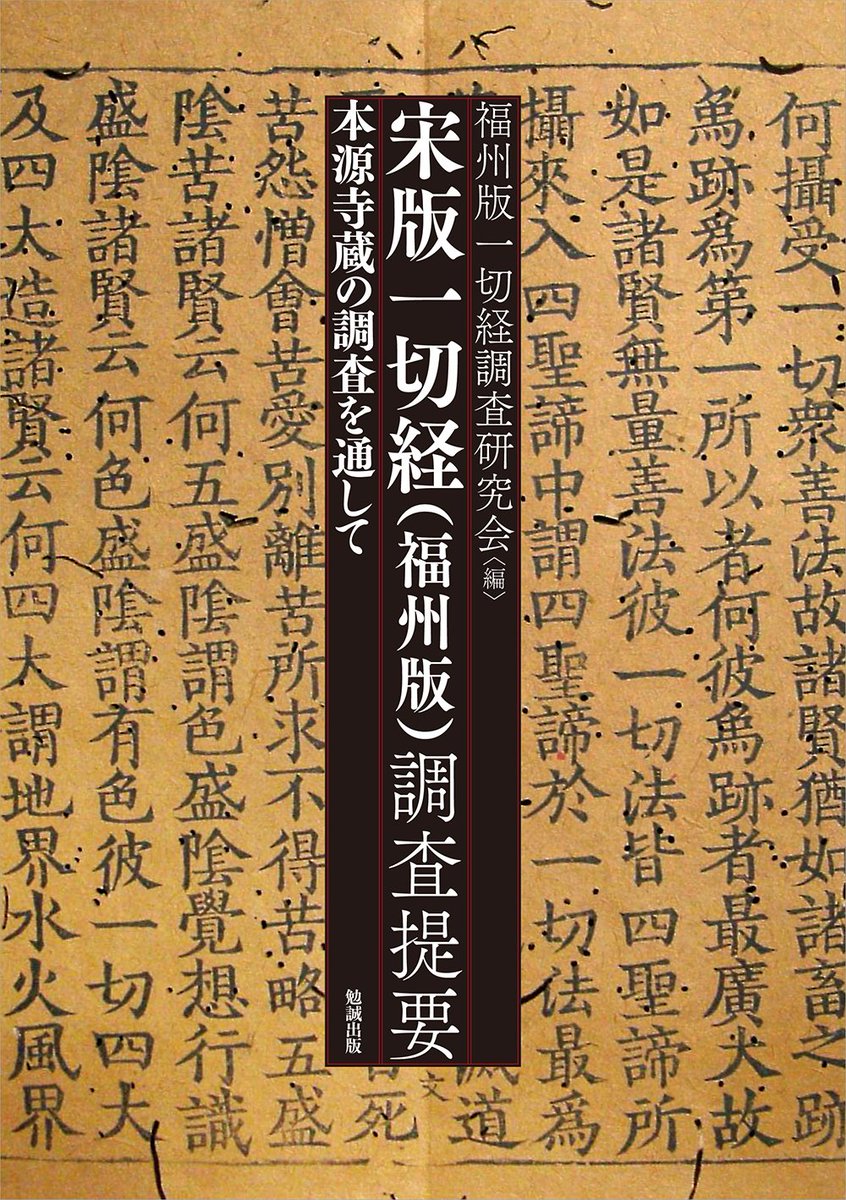 何攝受一切衆善法故諸賢猶如諸畜之跡
象跡爲第一所以者何彼象跡者最廣大故
如是諸賢無量善法彼一切法皆四聖諦所
攝來入四聖諦中謂四聖諦於一切法最爲
滅道
文
福州版一切経調査研究会〈編〉
宋版一切経(福州版)調査提要
本源寺蔵の調査を通して
勉誠出版
死
苦怨憎會苦愛別離苦所求不得苦略五盛
陰苦諸賢云何五盛陰謂色盛陰覺想行識
盛陰諸賢云何色盛陰謂有色彼一切四大
及四大造諸賢云何四大謂地界水火風界